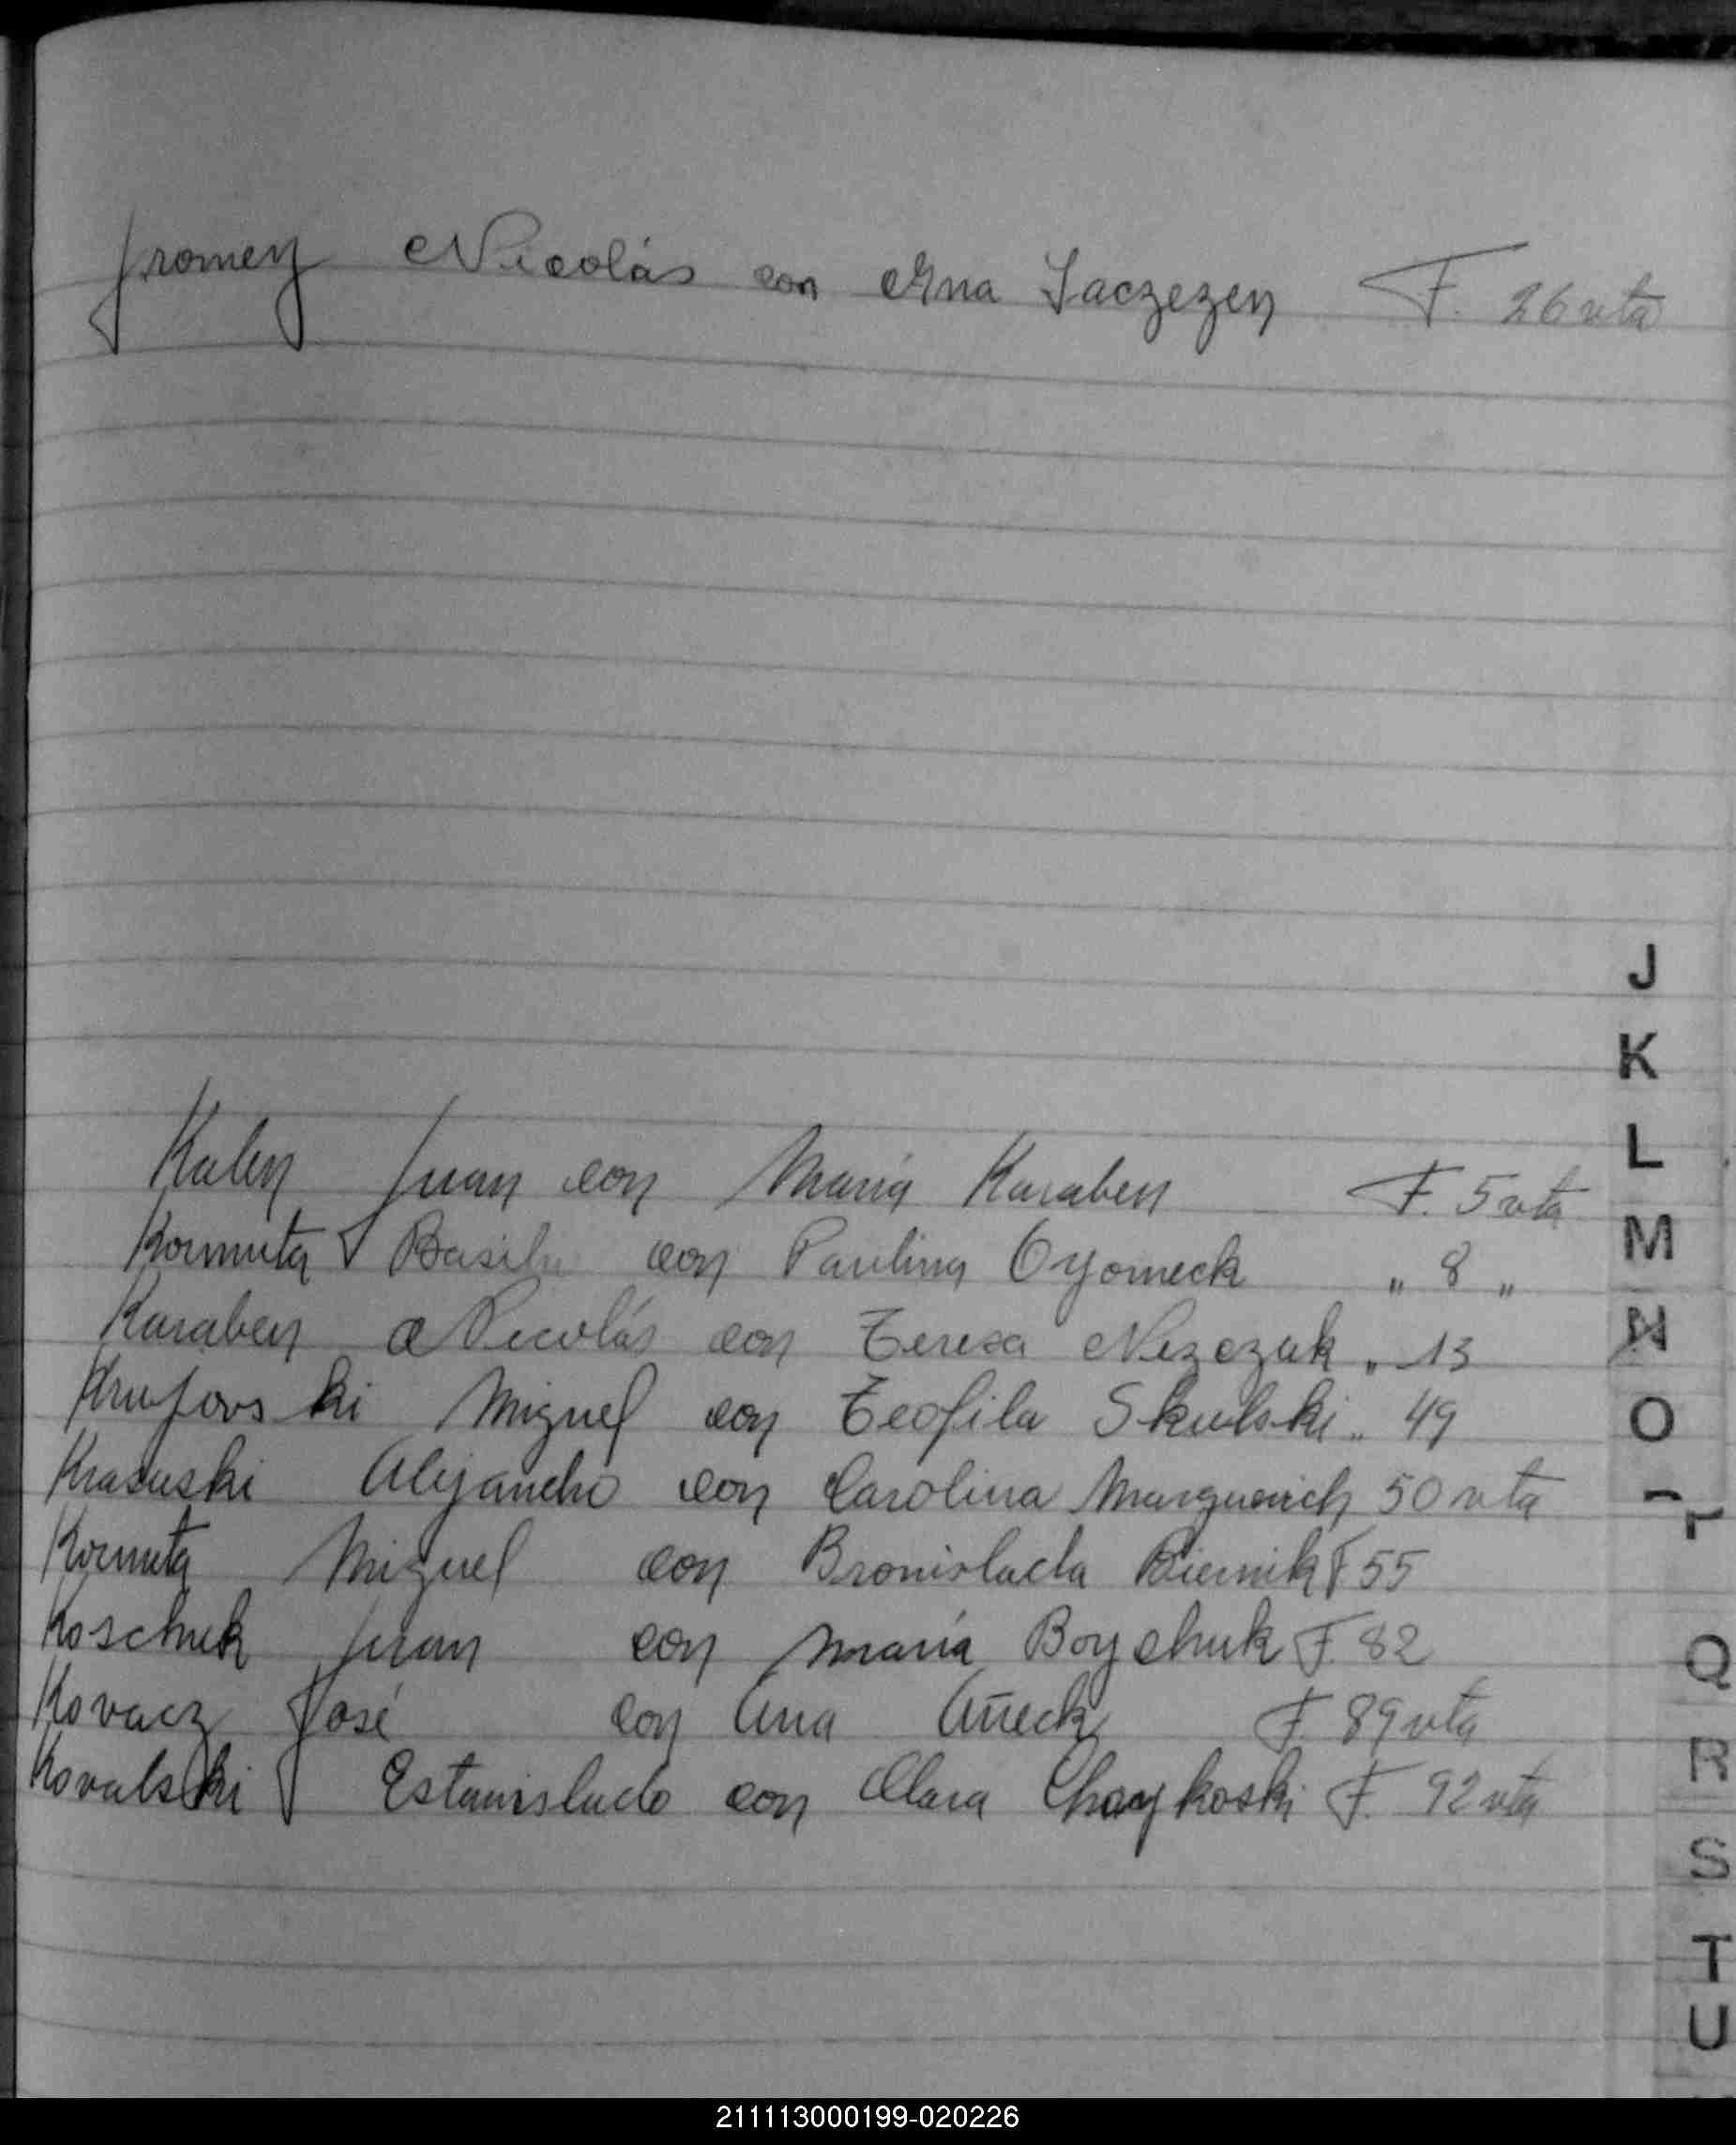 Jromey Nicolás con Ana Jaczezen F. 26 vta
Kalen Juan con María Karaben F. 5 vta
Kormuta Basilio con Paulina Oyomeck " 8 "
Karaben Nicolás con Teresa Niezczuk " 13
Krujovski Miguel con Teofila Skulski " 49
Krasuski Alejandro con Carolina 50 vta
Kormuta Miguel con Bronislada Biernik F 55
Koschuk Juan con María Boychuk F. 82
Kovacz José con Ana Añeck F. 89 vta
Kovalski Estanislado con Clara Chaykoski F. 92 vta
J
K
L
M
N
O
Q
R
S
T
U
211113000199-020226